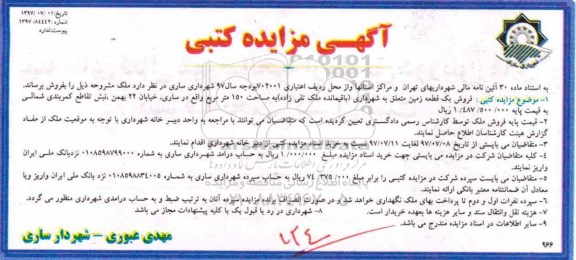 تاریخ:۱۳۹۷/۰۷/۰۱
شماره :۱۳۹۷/۸۴۴۴۲
پیوست:ندارد
آگهی مزایده کتبی
به استناد ماده ۳۰ آئین نامه مالی شهرداریهای تهران و مراکز استانها واز محل ردیف اعتباری ۷۰۲۰۰۱بودجه سال۹۷ شهرداری ساری در نظر دارد ملک مشروحه ذیل را بفروش برساند.
۱- موضوع مزایده کتبی : فروش یک قطعه زمین متعلق به شهرداری (باقیمانده ملک تقی زاده)به مساحت ۱۵۰ متر مربع واقع در ساری، خیابان ۲۲ بهمن ،نبش تقاطع کمربندی شمالی
به قیمت پایه ۱/۴۸۷/۵۰۰/۰۰۰ ریال
۲- قیمت پایه فروش ملک توسط کارشناس رسمی دادگستری تعیین گردیده است که متقاضیان می توانند با مراجعه به واحد دبیر خانه شهرداری با توجه به موقعیت ملک از مفاد
گزارش هیئت کارشناسان اطلاع حاصل نمایند.
۳- متقاضیان می بایستی از تاریخ ۹۷/۰۷/۰۸ لغایت ۹۷/۰۷/۱۱ نسبت به خرید اسناد مزایده کتبی از دبیر خانه شهرداری اقدام نمایند.
۴- کلیه متقاضیان شرکت در مزایده می بایستی جهت خرید اسناد مزایده مبلغ ۱/۰۰۰/۰۰۰ ریال به حساب درآمد شهرداری ساری به شماره ۰۱۰۸۵۹۸۷۹۹۰۰۰ نزدبانک ملی ایران
واریز نمایند.
۵- متقاضیان می بایست سپرده شرکت در مزایده کتبی را برابر مبلغ ۷۴/۳۷۵/۰۰۰ ریال به حساب سپرده شهرداری ساری به شماره ۰۱۰۸۵۹۸۸۳۴۰۰۵ نزد بانک ملی ایران واریز ویا
معادل آن ضمانتنامه معتبر بانکی ارائه نمایند.
۶- سپرده نفرات اول و دوم تا پرداخت بهای ملک نگهداری خواهد شد و در صورت انصراف برنده مزایده سپرده آنان به ترتیب ضبط و به حساب درآمدی شهرداری منظور می گردد.
۷- هزینه نقل وانتقال سند و سایر هزینه ها بعهده خریدار است. ۸- شهرداری در رد یا قبول یک یا کلیه پیشنهادات مجاز می باشد
۹- سایر اطلاعات در اسناد مزایده مندرج می باشد.
مهدی عبوری – شهردار ساری
۱۲۴
۹۶۶